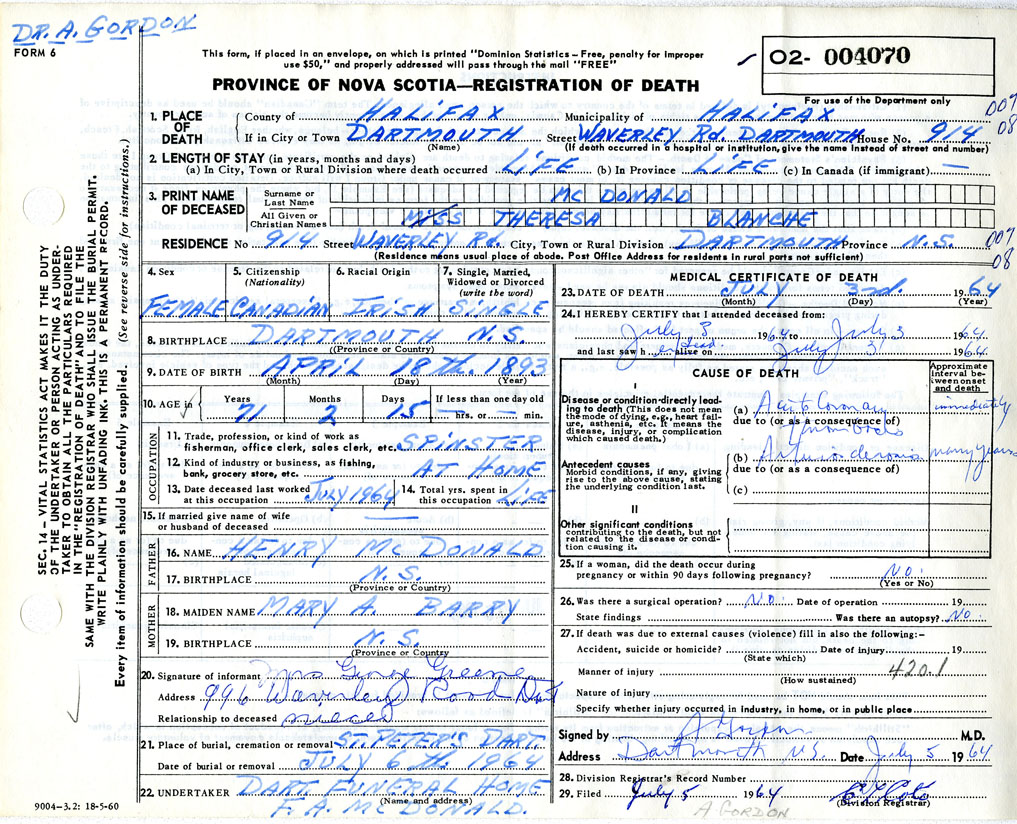 DR. A. GORDON
FORM 6
This form, if placed in an envelope, on which is printed "Dominion Statistics – Free, penalty for improper
use $50," and properly addressed will pass through the mail "FREE"
02- 004070
PROVINCE OF NOVA SCOTIA—REGISTRATION OF DEATH
For use of the Department only
007
08
1. PLACE OF DEATH
County of HALIFAX Municipality of HALIFAX
If in City or Town DARTMOUTH Street WAVERLEY RD. DARTMOUTH House No. 914
(Name) (If death occurred in a hospital or institution, give the name instead of street and number)
2. LENGTH OF STAY (in years, months and days)
(a) In City, Town or Rural Division where death occurred LIFE (b) In Province LIFE (c) In Canada (if immigrant) —
3. PRINT NAME OF DECEASED
Surname or Last Name MC DONALD
All Given or Christian Names MISS THERESA BLANCHE
RESIDENCE No 914 Street WAVERLEY RD. City, Town or Rural Division DARTMOUTH Province N.S.
007
08
(Residence means usual place of abode. Post Office Address for residents in rural parts not sufficient)
4. Sex
FEMALE
5. Citizenship (Nationality)
CANADIAN
6. Racial Origin
IRISH
7. Single, Married, Widowed or Divorced (write the word)
SINGLE
8. BIRTHPLACE DARTMOUTH N.S.
(Province or Country)
9. DATE OF BIRTH APRIL 18TH. 1893
(Month) (Day) (Year)
10. AGE
Years 71 Months 2 Days 15 If less than one day old
— hrs. or — min.
OCCUPATION
11. Trade, profession, or kind of work as
fisherman, office clerk, sales clerk, etc. SPINSTER
12. Kind of industry or business, as fishing,
bank, grocery store, etc. AT HOME
13. Date deceased last worked at this occupation JULY 1964
14. Total yrs. spent in this occupation LIFE
15. If married give name of wife
or husband of deceased —
FATHER
16. NAME HENRY MC DONALD
17. BIRTHPLACE N.S.
(Province or Country)
MOTHER
18. MAIDEN NAME MARY A. BARRY
19. BIRTHPLACE N.S.
(Province or Country)
20. Signature of informant Mrs George Greene
Address 996 Waverley Road Dart
Relationship to deceased
21. Place of burial, cremation or removal ST. PETER'S DART.
Date of burial or removal JULY 6TH 1964
22. UNDERTAKER DART FUNERAL HOME
(Name and address)
F. A. MC DONALD.
9004–3.2: 18-5-60
SEC. 14 – VITAL STATISTICS ACT MAKES IT THE DUTY
OF THE UNDERTAKER OR PERSON ACTING AS UNDER-
TAKER TO OBTAIN ALL THE PARTICULARS REQUIRED
IN THE "REGISTRATION OF DEATH" AND TO FILE THE
SAME WITH THE DIVISION REGISTRAR WHO SHALL ISSUE THE BURIAL PERMIT.
WRITE PLAINLY WITH UNFADING INK. THIS IS A PERMANENT RECORD.
Every item of information should be carefully supplied. (See reverse side for instructions.)
MEDICAL CERTIFICATE OF DEATH
23. DATE OF DEATH JULY 3RD. 1964
(Month) (Day) (Year)
24. I HEREBY CERTIFY that I attended deceased from:
July 3 1964 to July 3 1964
dead
and last saw her alive on July 3 1964
CAUSE OF DEATH
Approximate interval be-tween onset and death
I
Disease or condition directly lead-
ing to death (This does not mean
the mode of dying, e.g., heart fail-
ure, asthenia, etc. It means the
disease, injury, or complication
which caused death.)
(a) Acute Coronary immediately
due to (or as a consequence of)
Thrombosis
Antecedent causes
Morbid conditions, if any, giving
rise to the above cause, stating
the underlying condition last.
(b) many years
due to (or as a consequence of)
(c)
II
Other significant conditions
contributing to the death, but not
related to the disease or condi-
tion causing it.
25. If a woman, did the death occur during
pregnancy or within 90 days following pregnancy? NO.
(Yes or No)
26. Was there a surgical operation? NO. Date of operation 19
State findings Was there an autopsy? NO.
27. If death was due to external causes (violence) fill in also the following:–
Accident, suicide or homicide? Date of injury 19
(State which)
Manner of injury 420.1
(How sustained)
Nature of injury
Specify whether injury occurred in industry, in home, or in public place
Signed by A Gordon M.D.
Address Dartmouth N.S. Date July 5 1964
28. Division Registrar's Record Number
29. Filed July 5 1964
(Division Registrar)
A GORDON